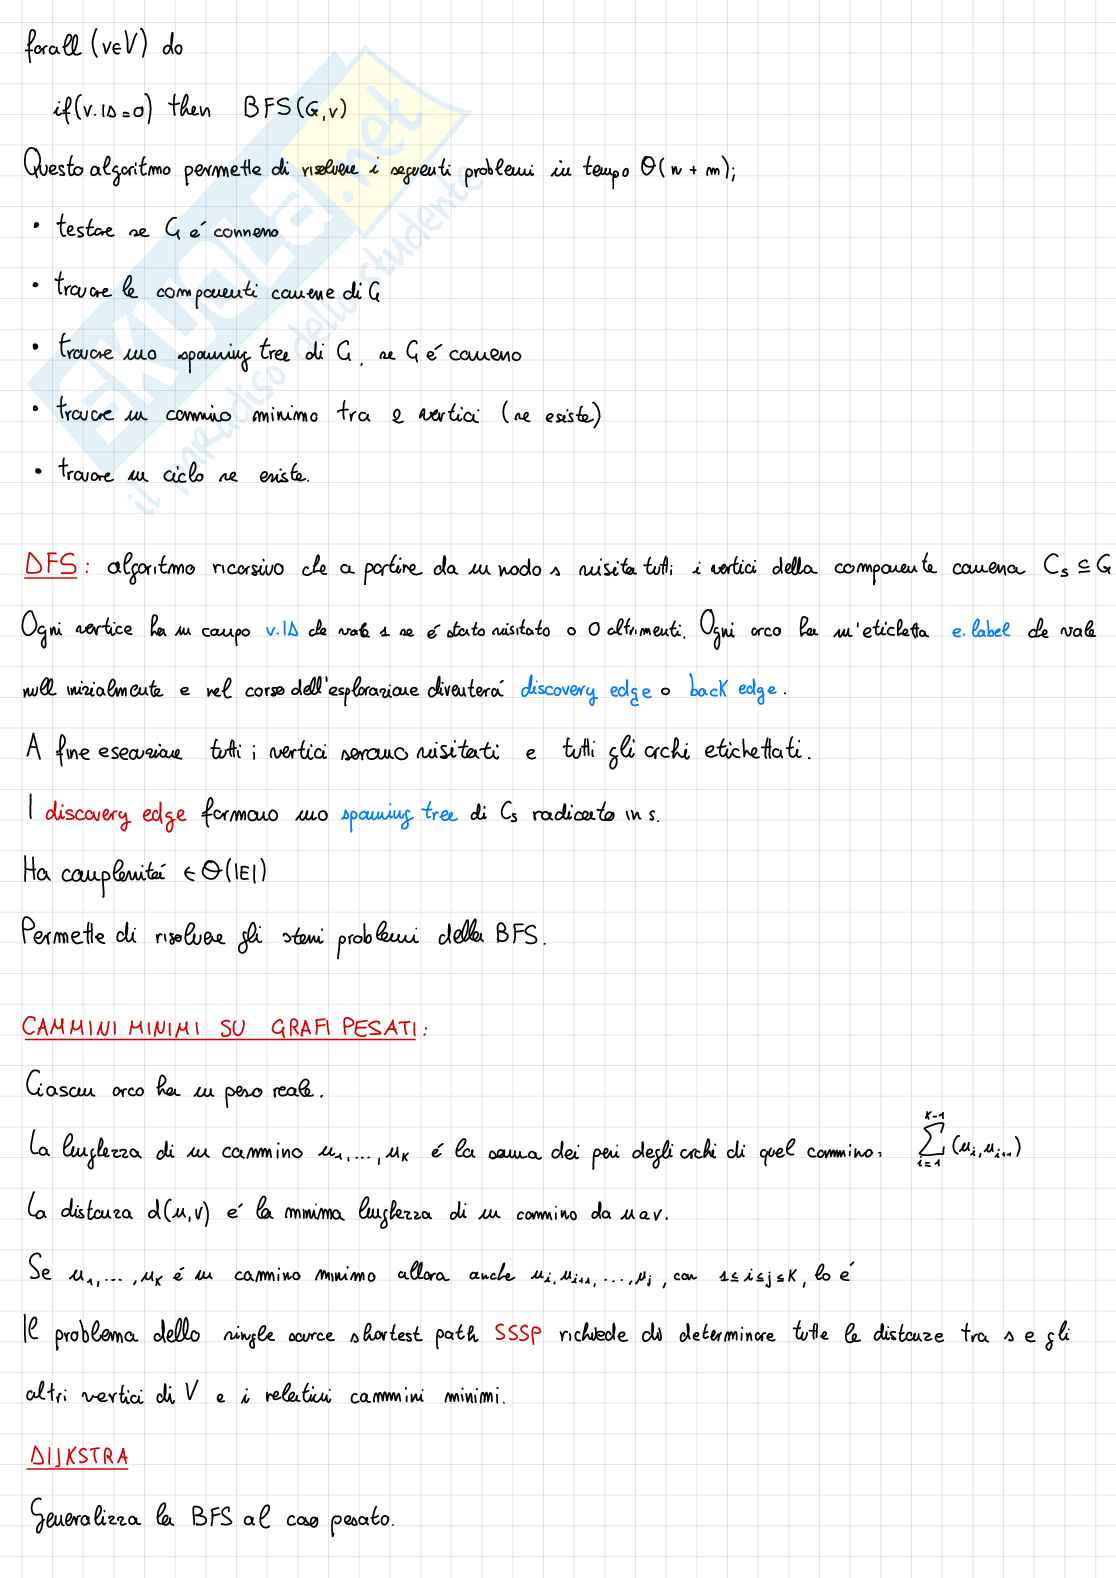 forall (v∈V) do
if(v.ID=0) then BFS(G,v)
Questo algoritmo permette di risolvere i seguenti problemi in tempo Θ(n+m);
• testare se G é connesso
• trovare le componenti connesse di G
• trovare uno spanning tree di G, se G é connesso
• trovare un cammino minimo tra 2 vertici (se esiste)
• trovare un ciclo se esiste.
DFS: algoritmo ricorsivo che a partire da un nodo s visita tutti i vertici della componente connessa Cs ⊆ G
Ogni vertice ha un campo v.ID che vale 1 se é stato visitato o 0 altrimenti. Ogni arco ha un'etichetta e.label che vale
null inizialmente e nel corso dell'esplorazione diventerá discovery edge o back edge.
A fine esecuzione tutti i vertici saranno visitati e tutti gli archi etichettati.
I discovery edge formano uno spanning tree di Cs radicato in s.
Ha complessitá ∈ Θ(|E|)
Permette di risolvere gli stessi problemi della BFS.
CAMMINI MINIMI SU GRAFI PESATI:
Ciascun arco ha un peso reale.
La lunghezza di un cammino u1,...,uk é la somma dei pesi degli archi di quel cammino: ∑_{i=1}^{k-1} (ui,ui+1)
La distanza d(u,v) é la minima lunghezza di un cammino da u a v.
Se u1,...,uk é un cammino minimo allora anche ui,ui+1,...,uj, con 1≤i≤j≤k, lo é
Il problema dello single source shortest path SSSP richiede di determinare tutte le distanze tra s e gli
altri vertici di V e i relativi cammini minimi.
DIJKSTRA
Generalizza la BFS al caso pesato.
SKUOLA.net
il paradiso dello studente